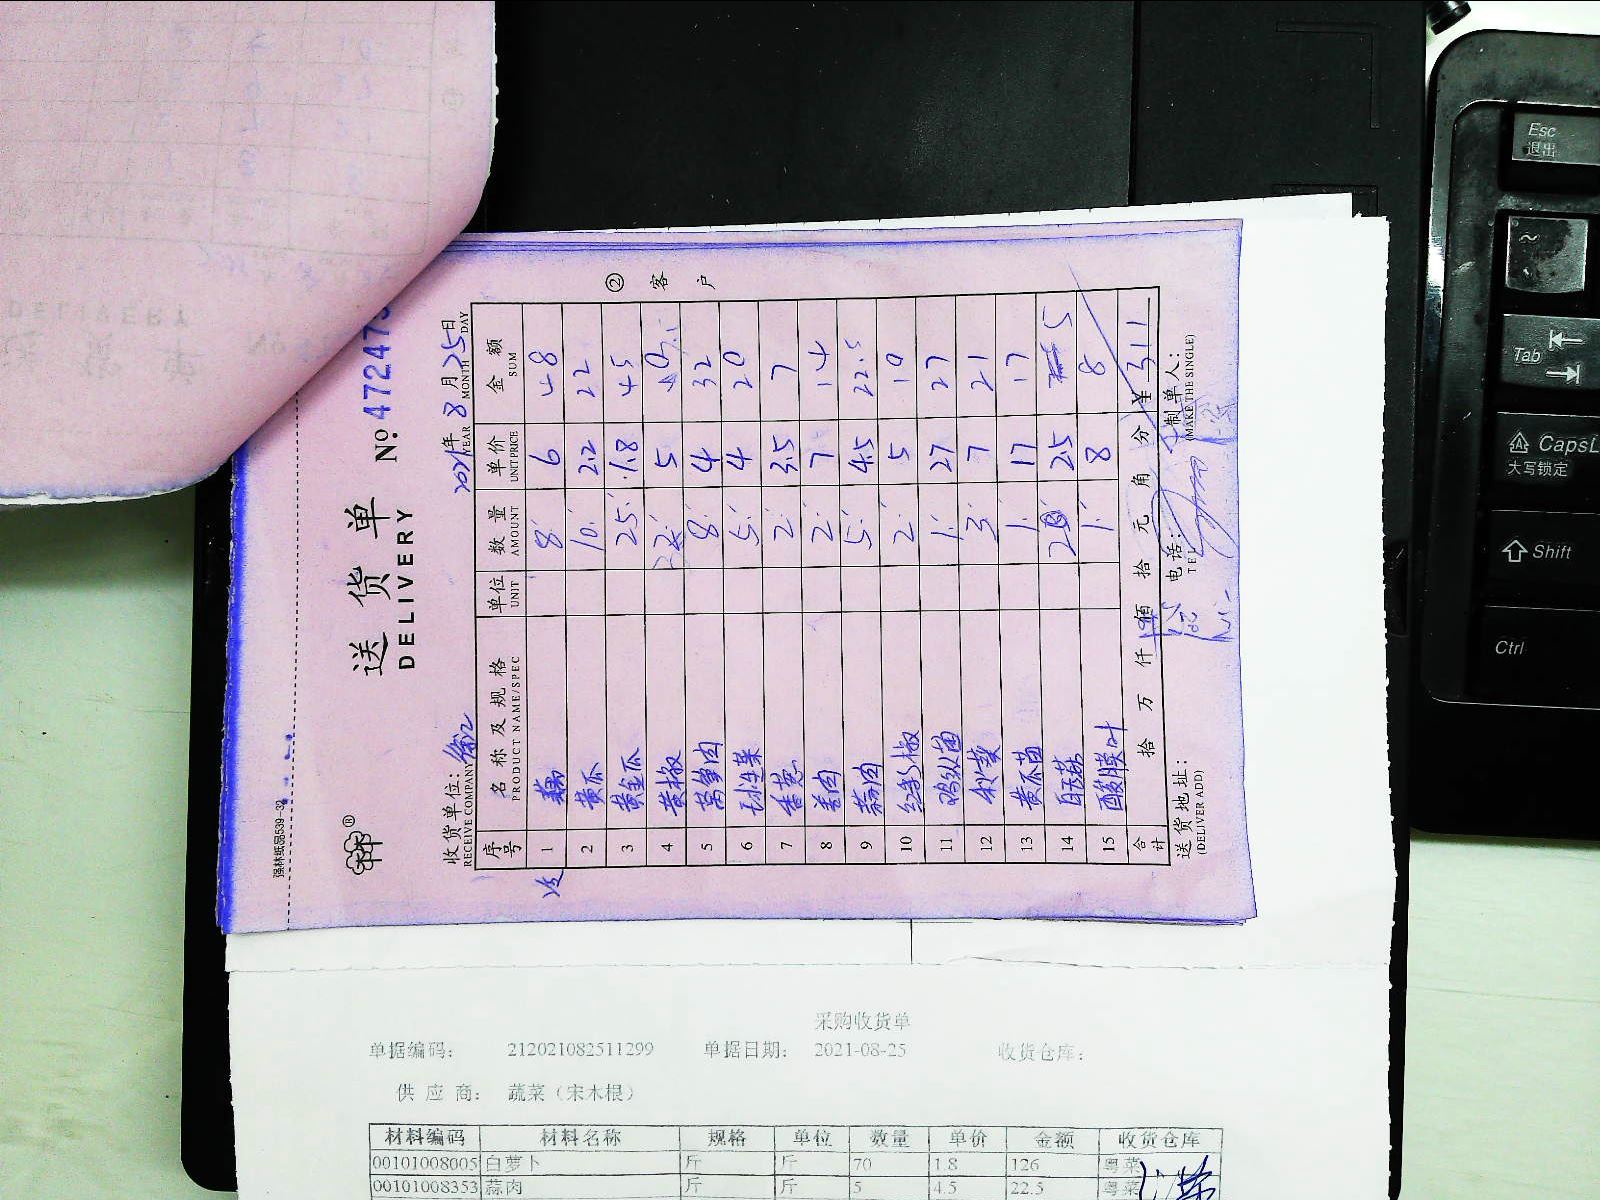 强林纸品539-32
送货单
DELIVERY
№ 472473
② 客户
收货单位:
RECEIVE COMPANY
2021年 8月25日
YEAR MONTH DAY
序号 名称及规格 单位 数量 单价 金额
PRODUCT NAME/SPEC UNIT AMOUNT UNIT PRICE SUM
1 藕 8 6 48
2 黄瓜 10 2.2 22
3 黄金瓜 25 1.8 45
4 黄椒 5
5 莴笋肉 8 4 32
6 球生菜 5 4 20
7 香葱 2 3.5 7
8 姜肉 2 7 14
9 蒜肉 5 4.5 22.5
10 红彩椒 2 5 10
11 鸡纵菌 1 27 27
12 秋葵 3 7 21
13 黄瓜苗 1 17 17
14 2 2.5 5
15 酸膜叶 1 8 8
合计 拾 万 仟 佰 拾 元 角 分 ¥ 311
送货地址:
(DELIVER ADD)
电话:
TEL
制单人:
(MAKE THE SINGLE)
采购收货单
单据编码: 212021082511299 单据日期: 2021-08-25 收货仓库:
供应商: 蔬菜（宋木根）
材料编码 材料名称 规格 单位 数量 单价 金额 收货仓库
00101008005 白萝卜 斤 斤 70 1.8 126 粤菜
00101008353 蒜肉 斤 斤 5 4.5 22.5 粤菜
Esc
退出
~
Tab
CapsL
大写锁定
Shift
Ctrl